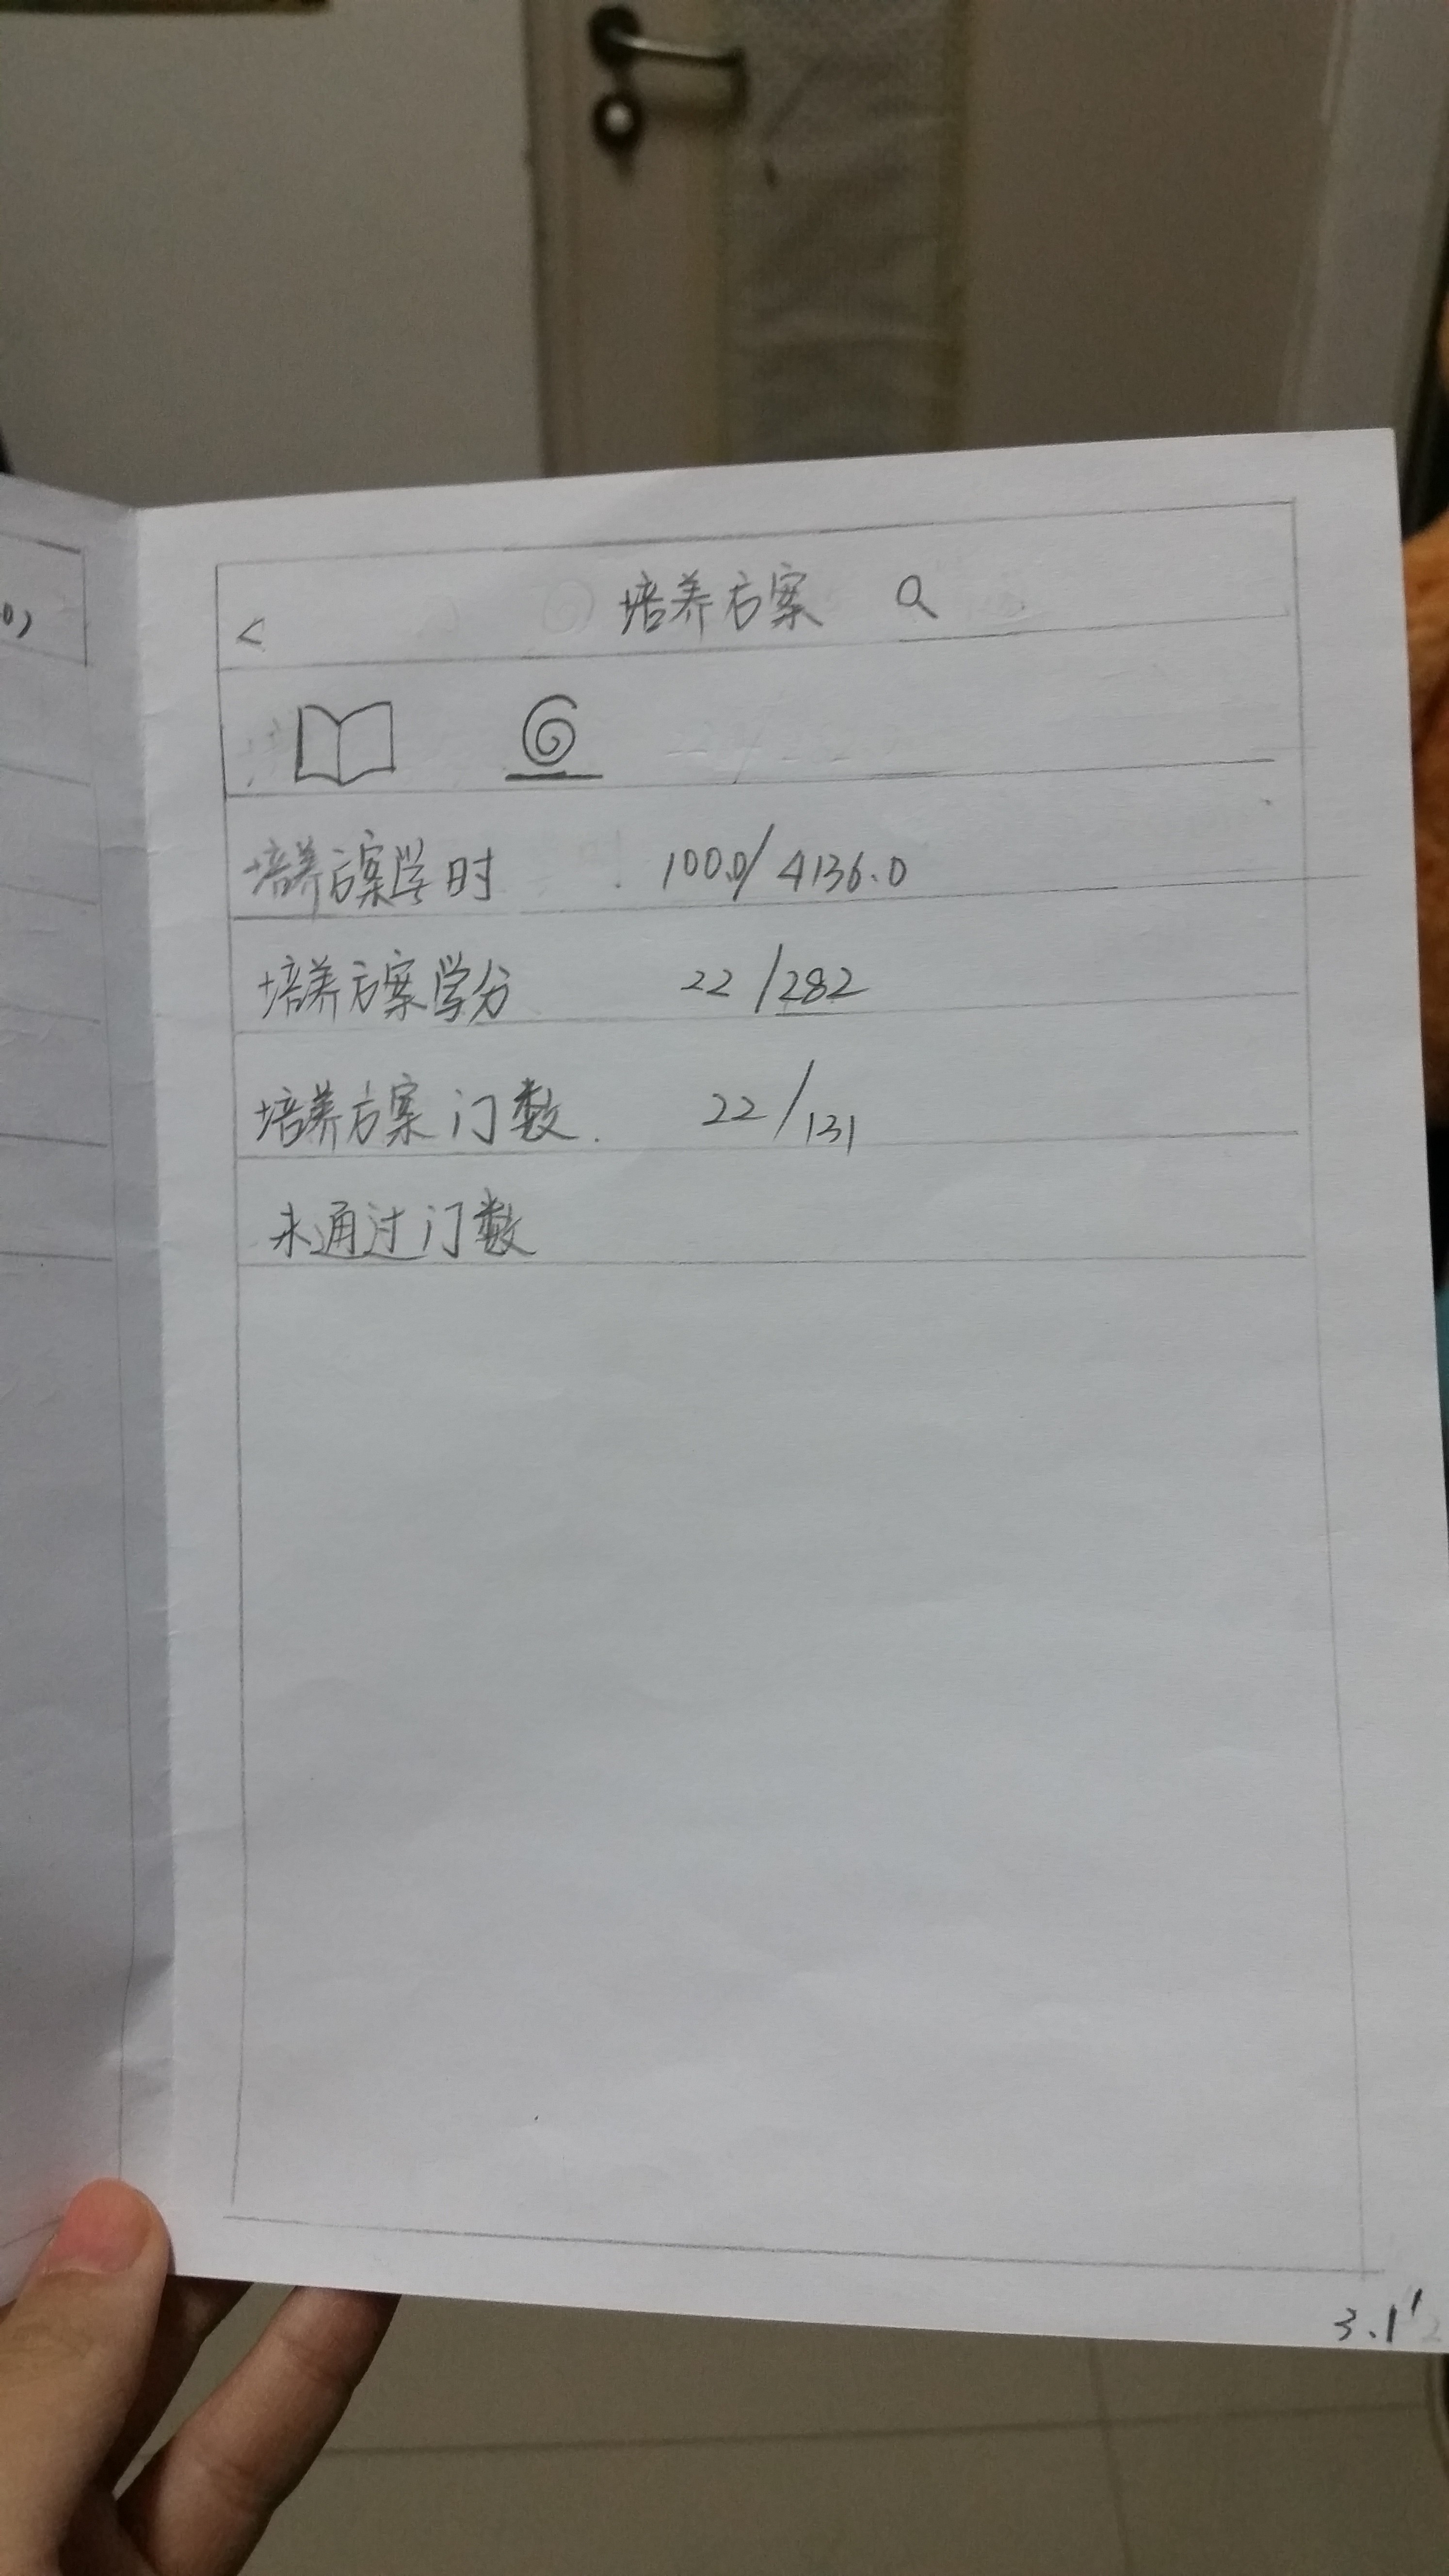 0)
< 培养方案
培养方案学时 100.0/4136.0
培养方案学分 22/282
培养方案门数. 22/131
未通过门数
3.1'